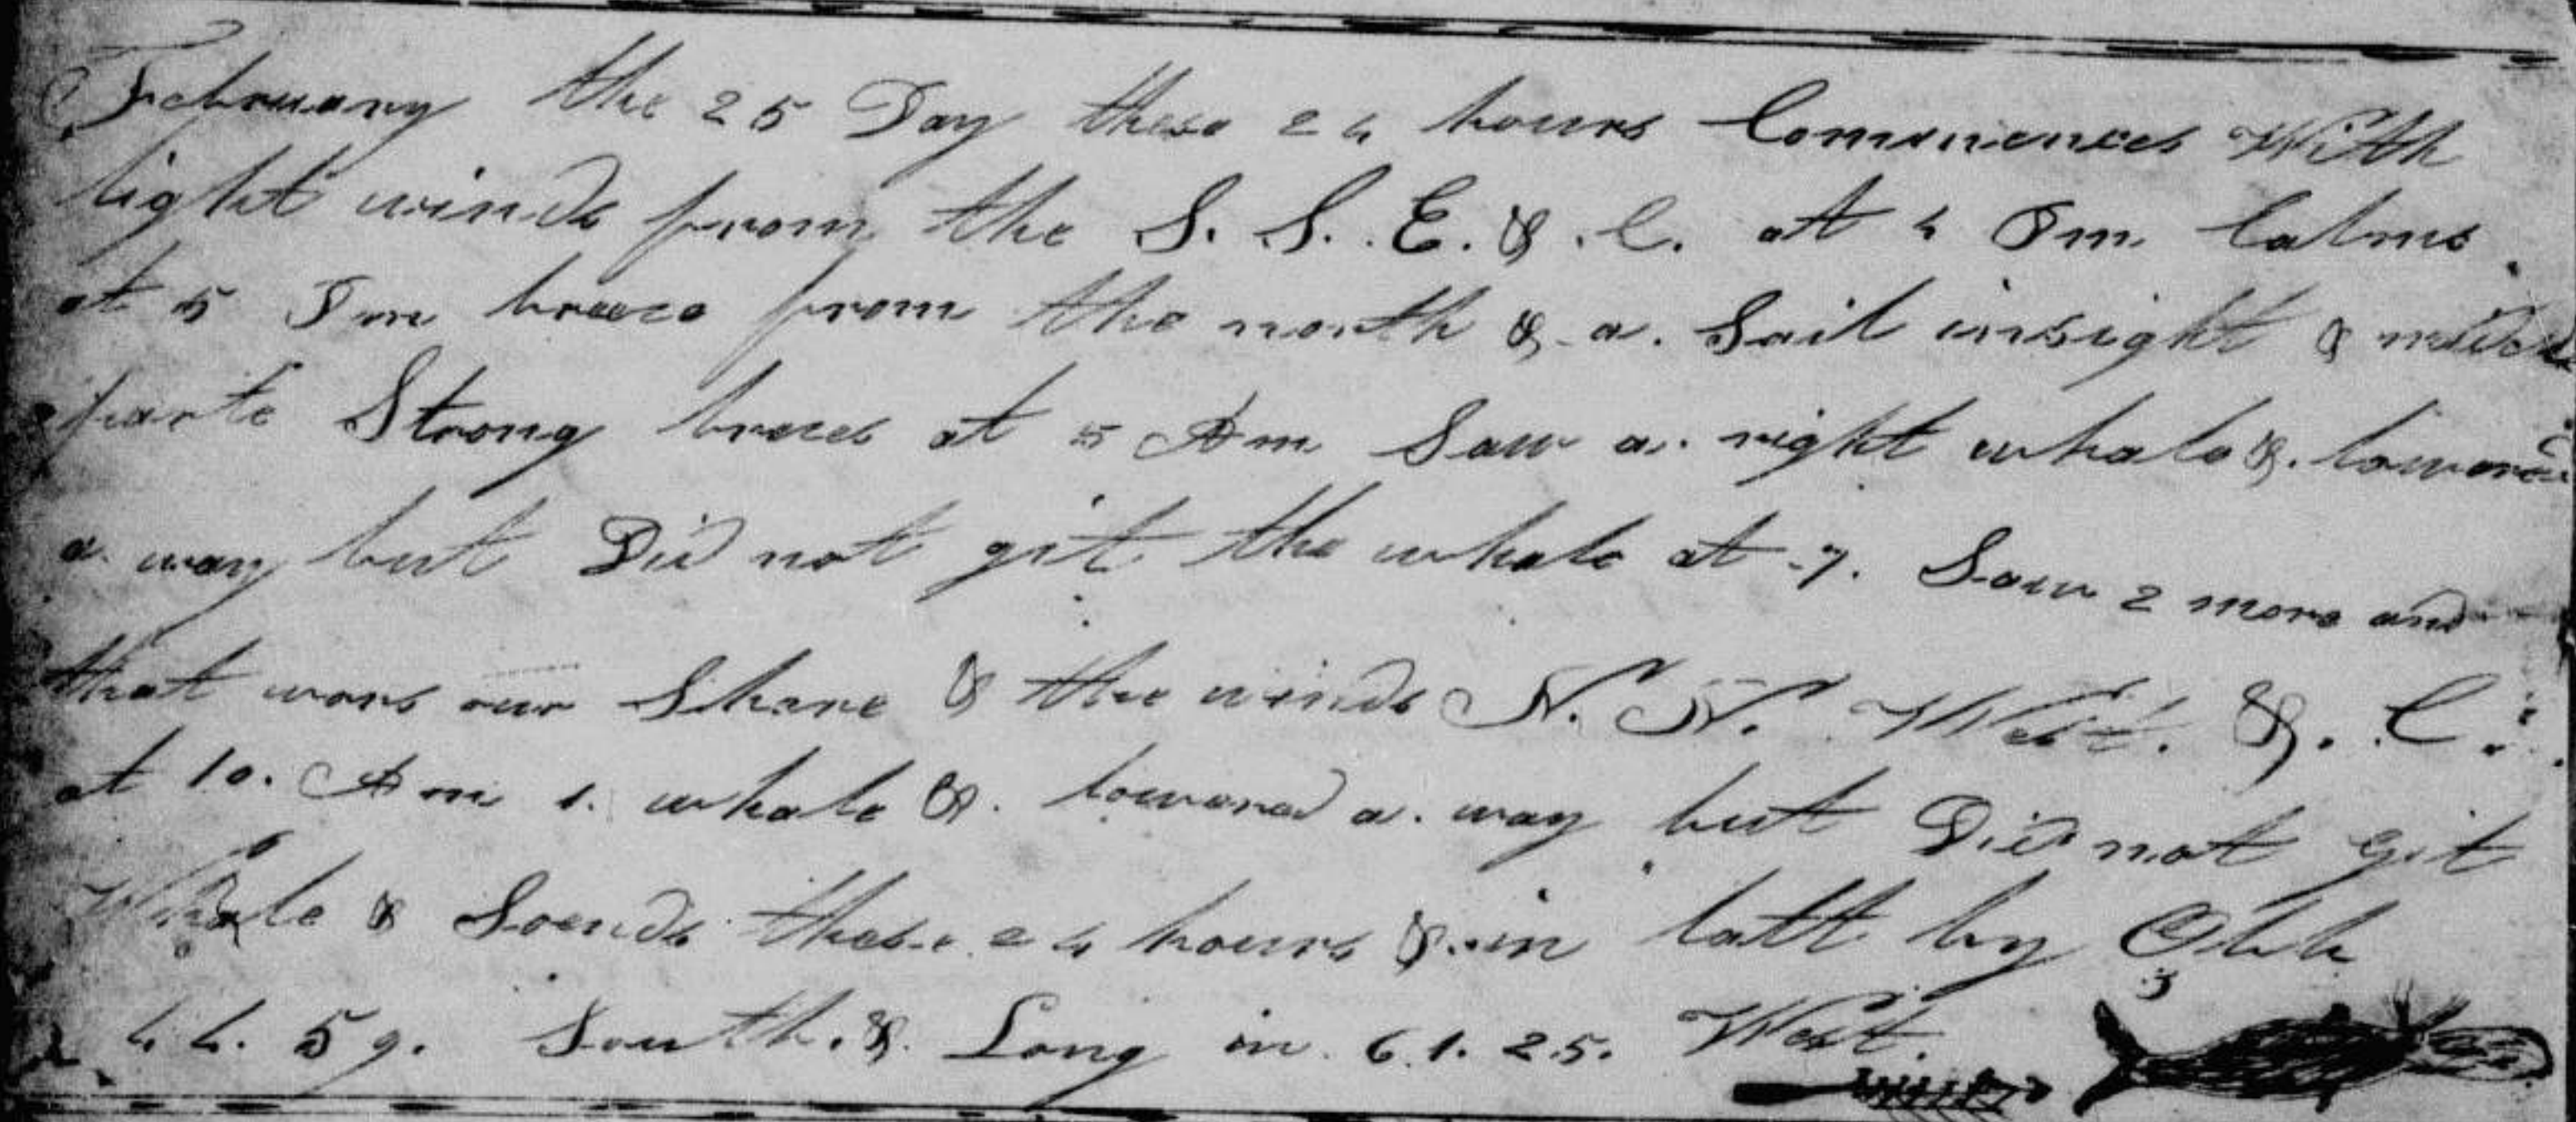 February the 25 Day these 24 hours Commences With
light winds from the S. S. E. & .C. at 4 Pm Calms
at 5 Pm breeze from the north & a. Sail insight & midel
parte Strong brees at 5 Am Saw a. right whale &. lowered
a. way but Did not git the whale at 7. Saw 2 more and
that wars our Share & the winds N. N. West. &. C.
at 10. Am 1. whale &. lowered a. way but Did not git
Whale & Soends these 24 hours &. in latt by Obb
44. 59. South. &. Long in 61. 25. West.